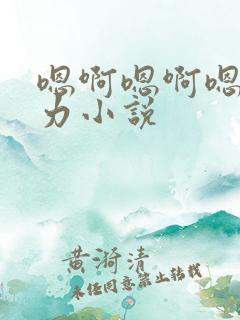 嗯啊嗯啊嗯
力小说
黄漪清
未经同意禁止转载